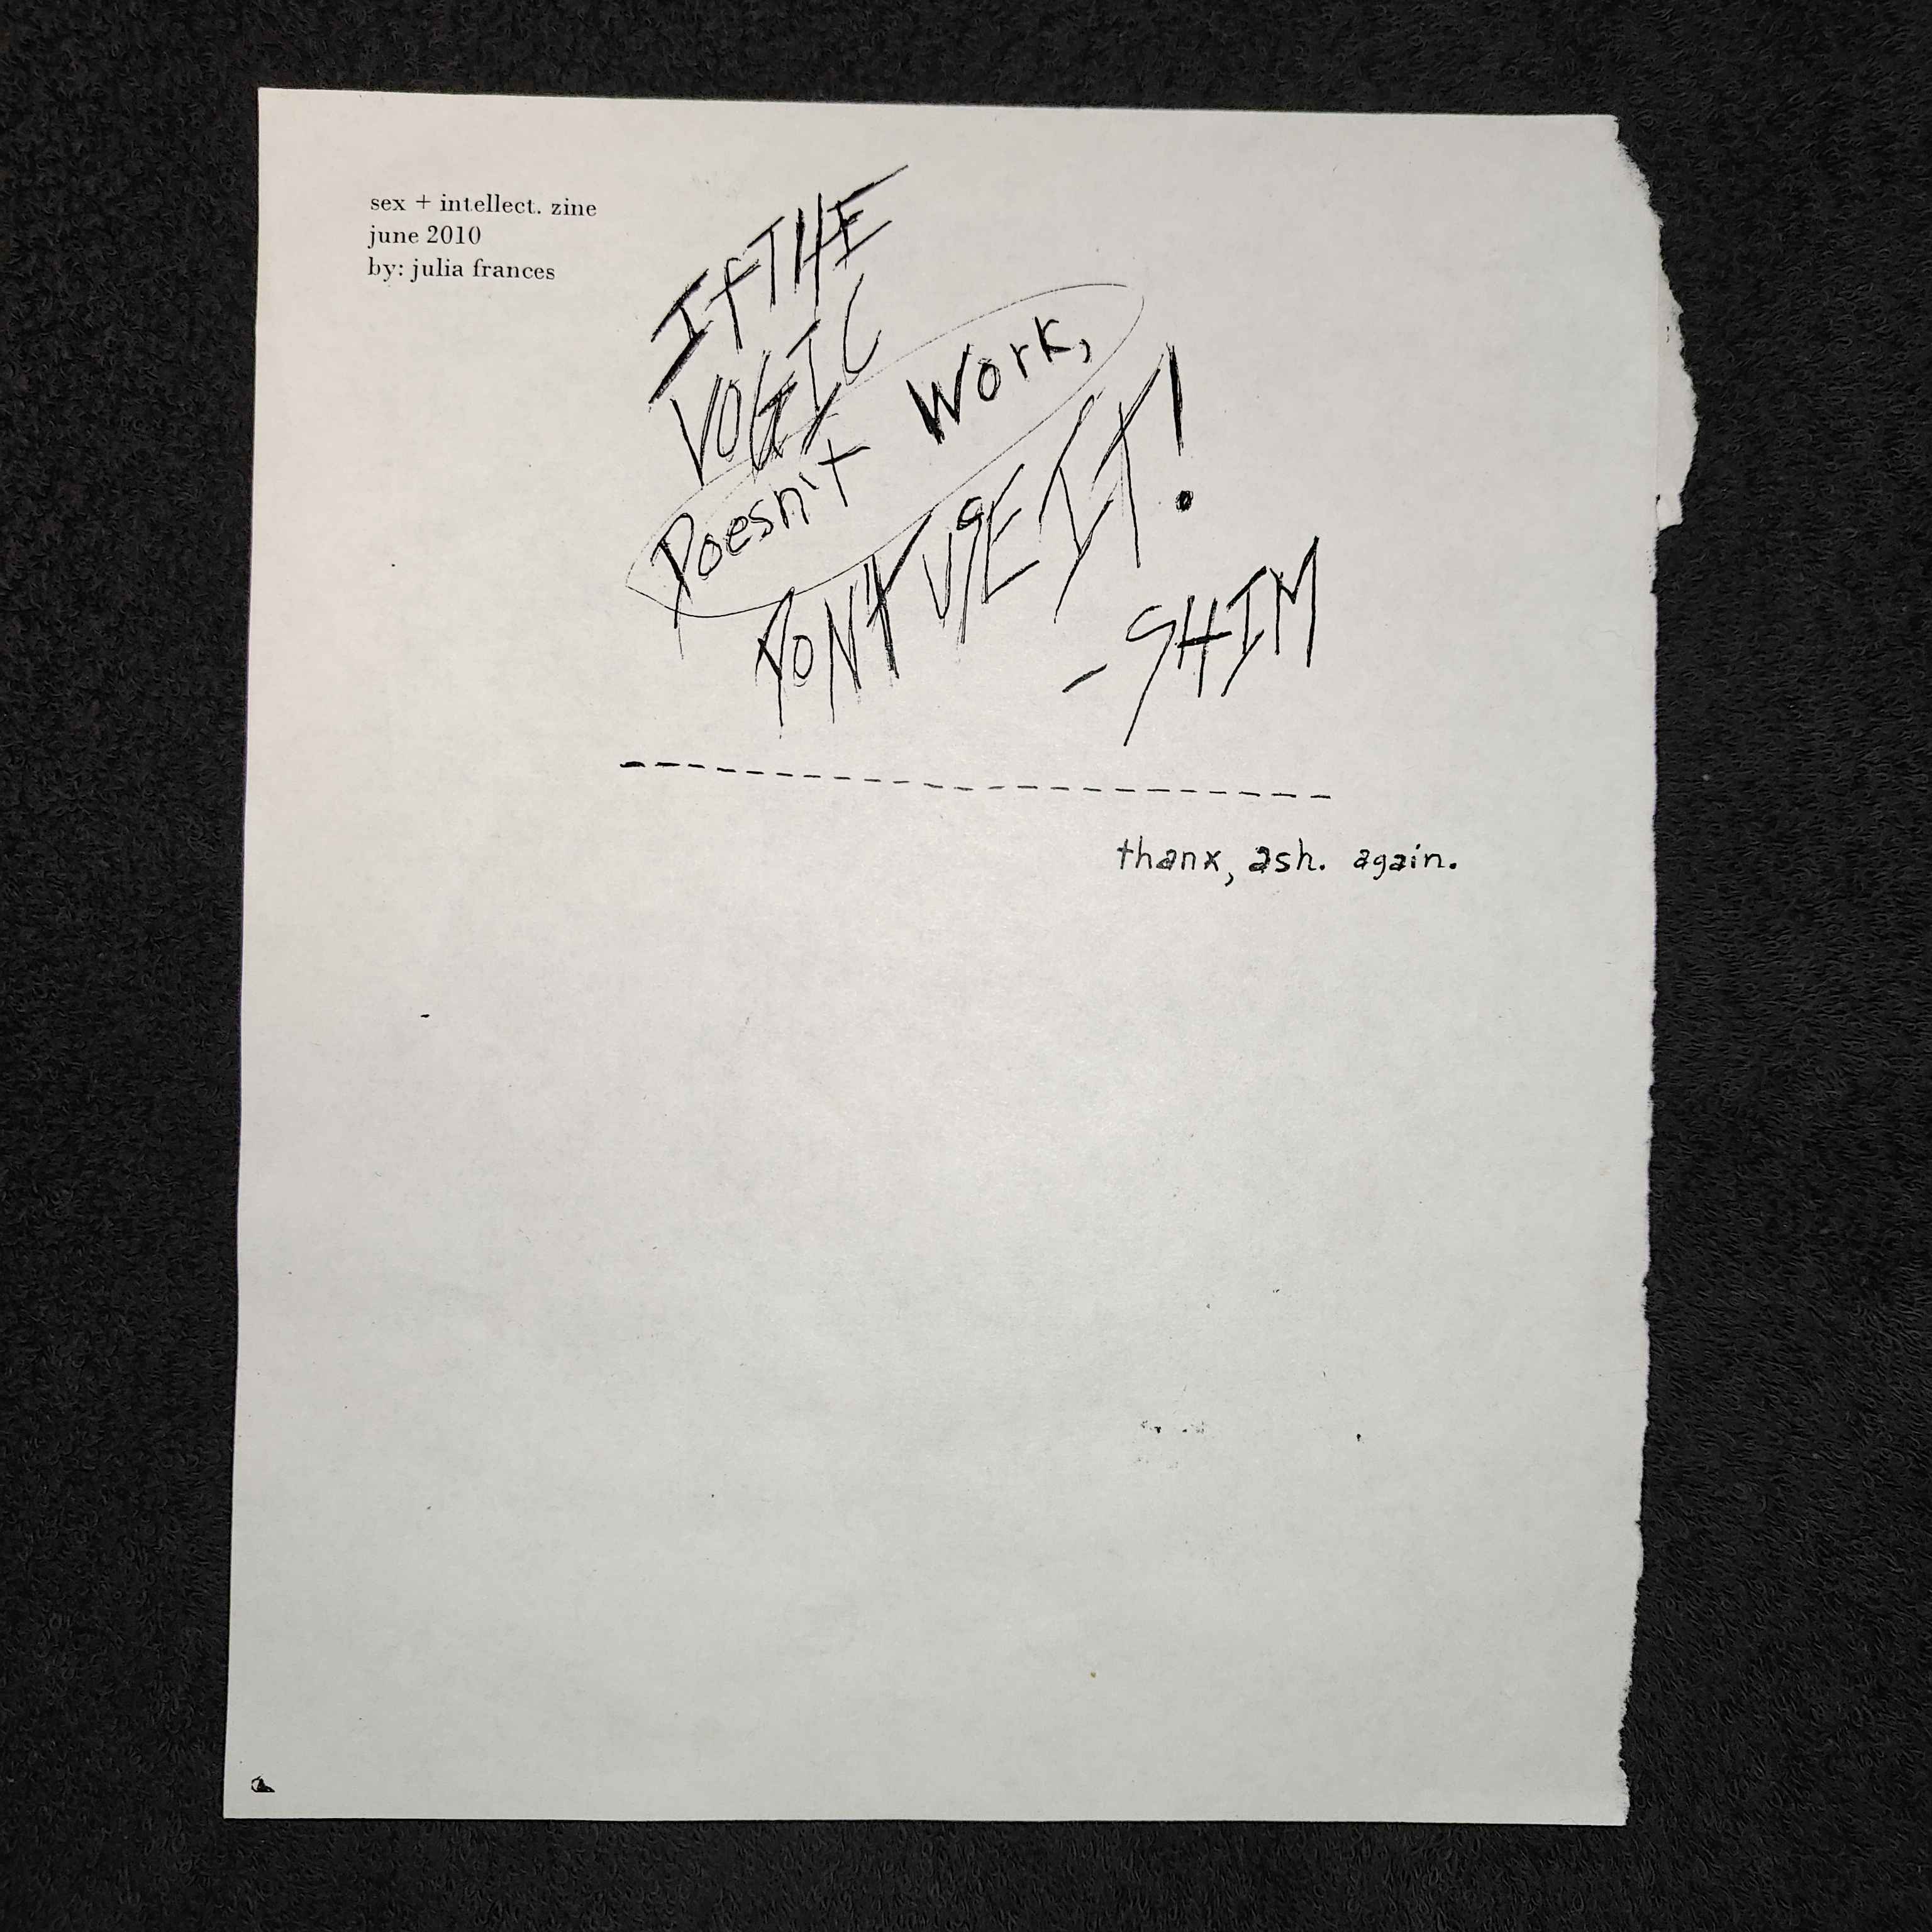 sex + intellect. zine
june 2010
by: julia frances
If THE
VOGIC
Doesn't Work,
DON'T USE IT!
- SHIM
thanx, ash. again.